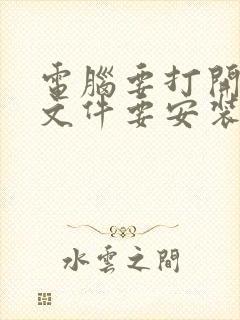 電腦要打開
文件要安裝
水雲之間